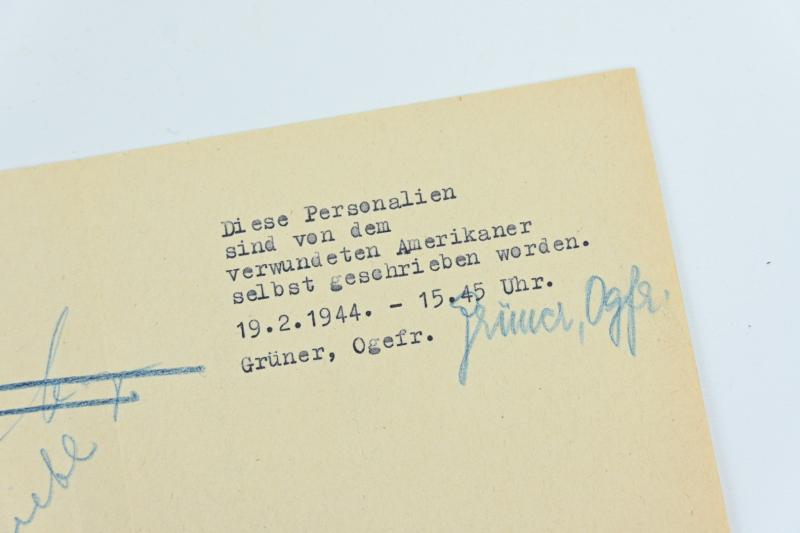 Diese Personalien
sind von dem
verwundeten Amerikaner
selbst geschrieben worden.
19.2.1944. - 15.45 Uhr.
Grüner, Ogefr.
Grüner, Ogfr.